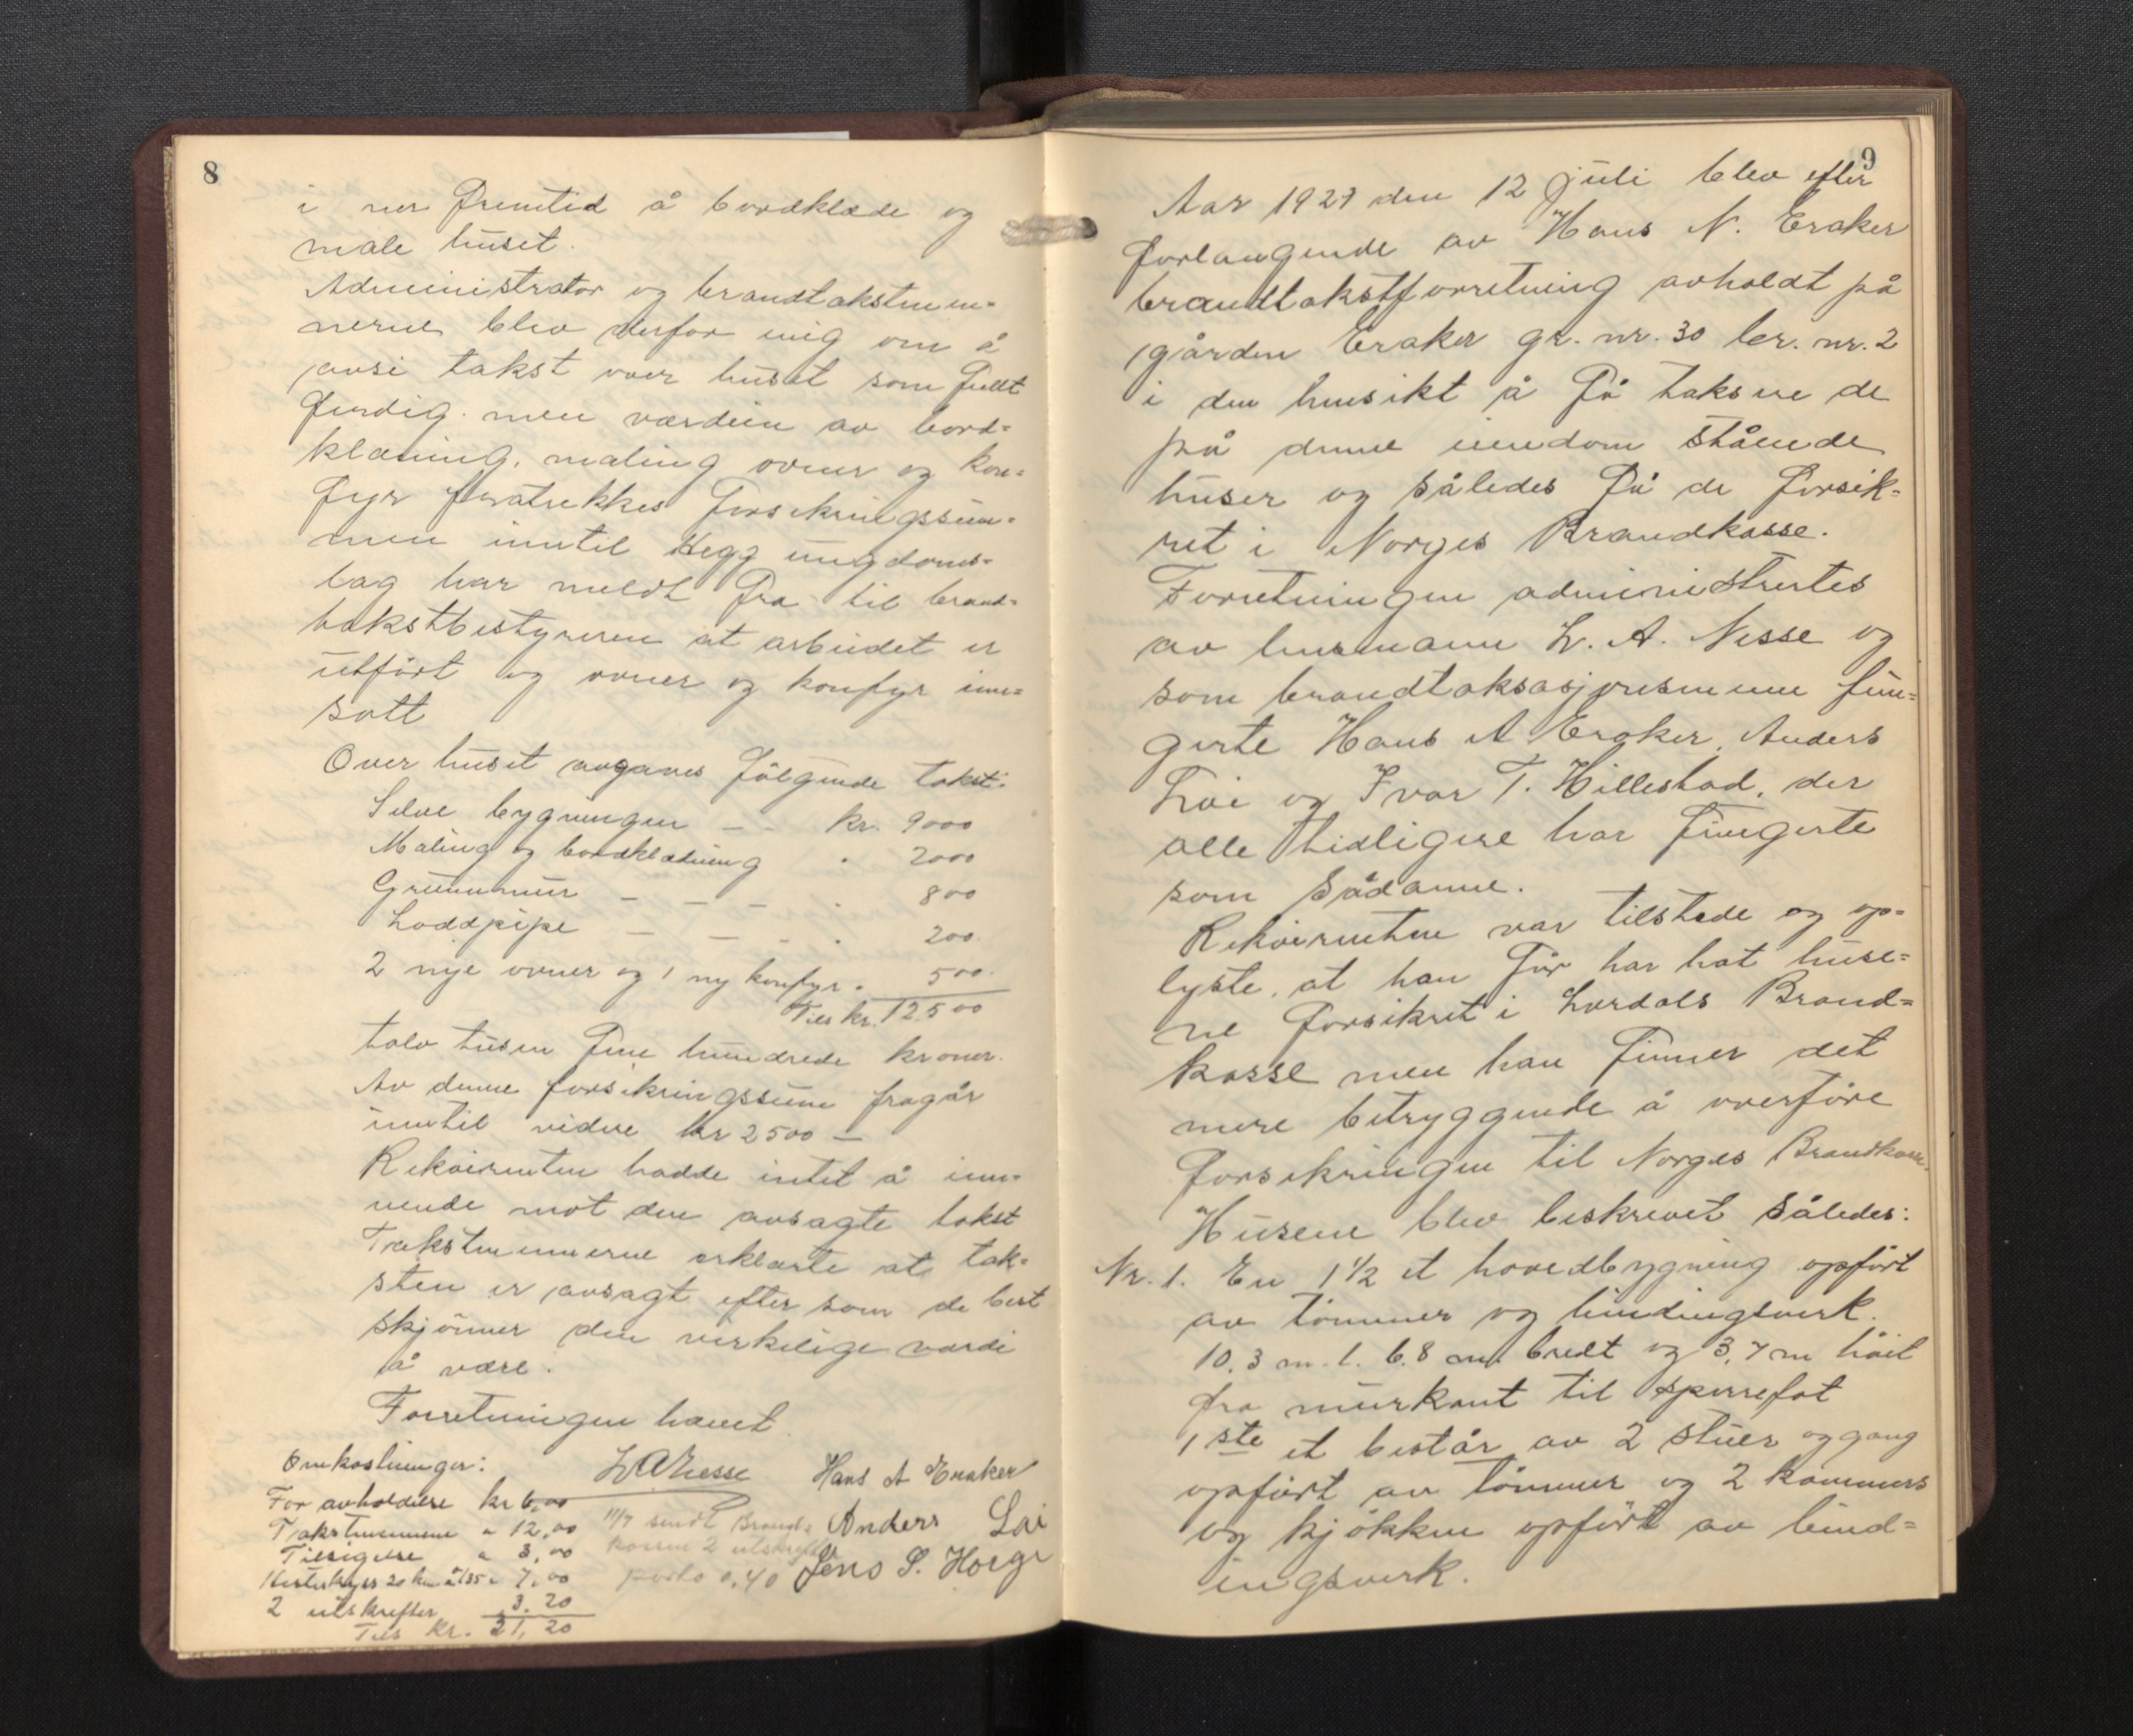 8
i nær fremtid å bordklæde og
male huset.
Administrator og brandtakstmen-
nerne blev derfor enig om å
avsi takst over huset som fullt
ferdig. men værdien av bord-
klæning, maling ovner og kom-
fyr fratrekkes forsikringssum-
men inntil Hegg ungdoms-
lag har meldt fra til brand-
takstbestyreren at arbeidet er
utført og ovner og komfyr inn-
satt
Over huset avgaves følgende takst:
Selve bygningen — - kr. 9000
Maling og bordklædning " 2000
Grunnmur — — — " 800
Loddpipe — — - " 200.
2 nye ovner og 1 ny komfyr " 500.
Tils kr. 12500
tolv tusen fem hundrede kroner.
Av denne forsikringssum fragår
inntil videre kr 2500 —
Rekvirenten hadde intet å inn-
vende mot den avsagte takst
Takstmennerne erklærte at tak-
sten er avsagt efter som de best
skjønner den virkelige værdi
å være.
Forretningen hævet
Omkostninger:
For avholdelse kr 6,00
Takstmennene " 12,00
Tilsigelse " 3,00
Hesteskyss 20 km à 35 " 7,00
2 utskrifter 3.20
Tils kr. 31,20
L A Nesse
Hans A Eraker
Anders Loi
Jens S. Horge
11/7 sendt Brand-
kassen 2 utskrifter
porto 0,40
9
Aar 1927 den 12 juli blev efter
forlangende av Hans N. Eraker
brandtakstforretning avholdt på
gården Eraker gr. nr. 30 br. nr. 2
i den hensikt å få taksere de
på denne eiendom stående
huser og således få de forsik-
ret i Norges Brandkasse.
Forretningen administrertes
av lensmann L. A. Nesse og
som brandtaksasjonsmenn fun-
gerte Hans A Eraker, Anders
Loi og Ivar T. Hillestad, der
alle tidligere har fungerte
som sådanne.
Rekvirenten var tilstede og op-
lyste, at han før har hat huse-
ne forsikret i Lærdals Brand-
kasse men han finner det
mere betryggende å overføre
forsikringen til Norges Brandkasse.
Husene blev beskrevet således:
Nr. 1. En 1 1/2 et hovedbygning opført
av tømmer og bindingsverk.
10.3 m. l. 6.8 m. bredt og 3,7 m høit
fra murkant til sperrefot
1ste et består av 2 stuer og gang
opført av tømmer og 2 kammers
og kjøkken opført av bind-
ingsverk.